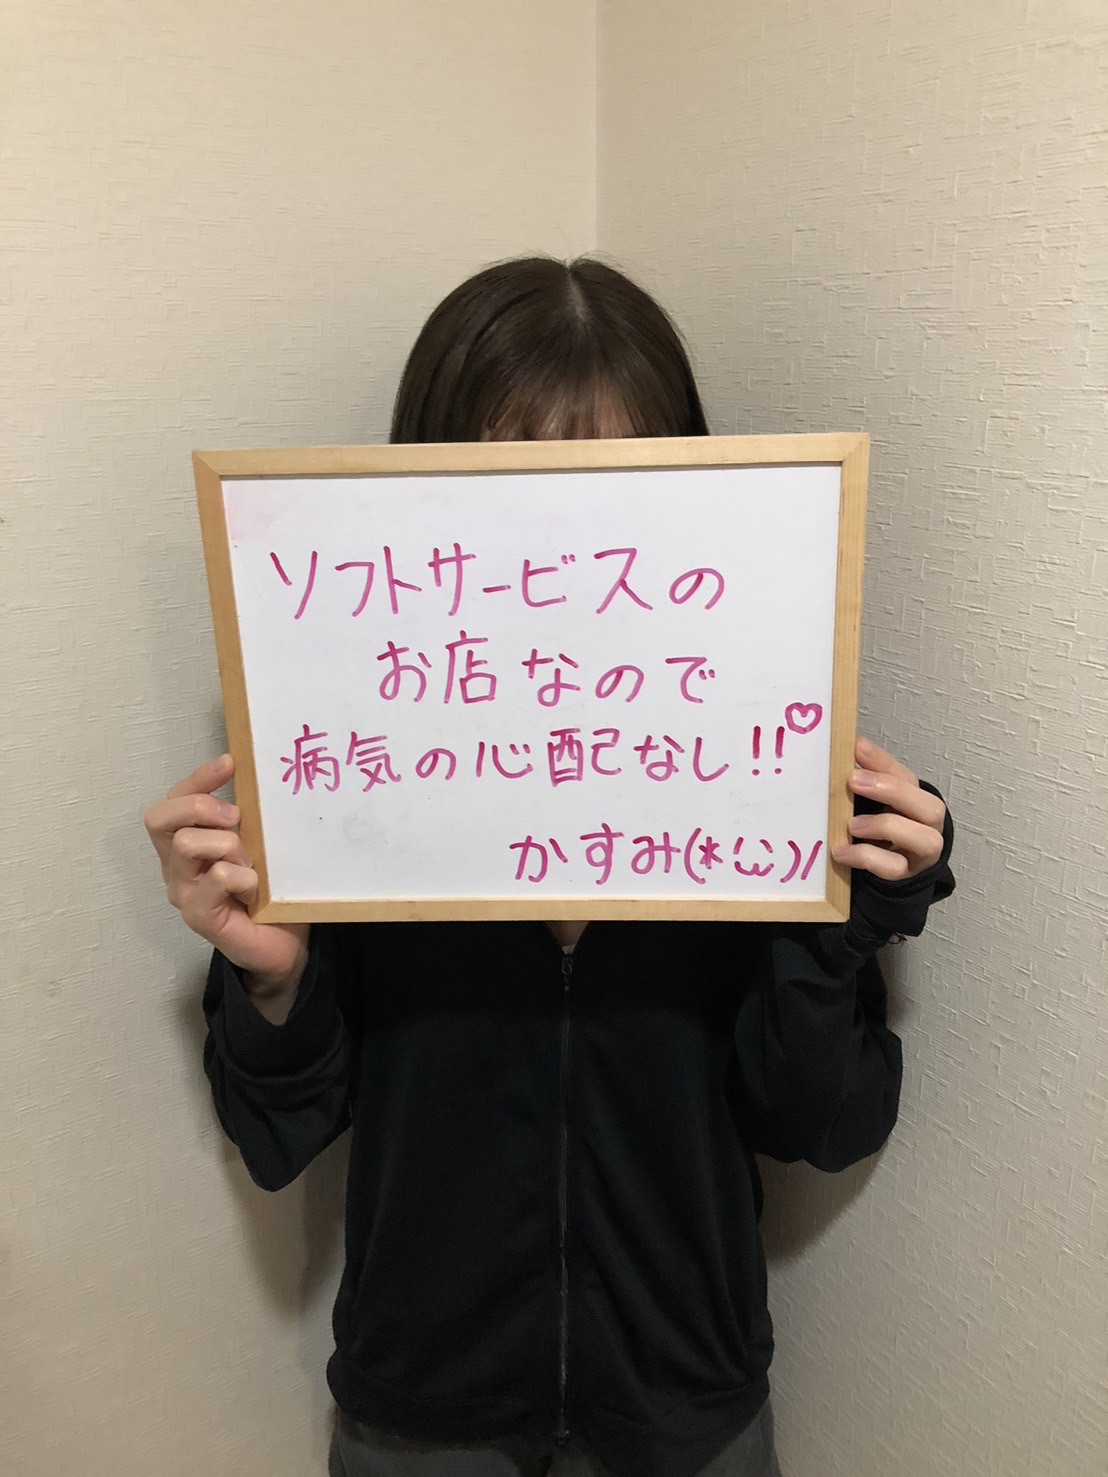 ソフトサービスの
お店なので
病気の心配なし!!♡
かすみ(*'ω')/